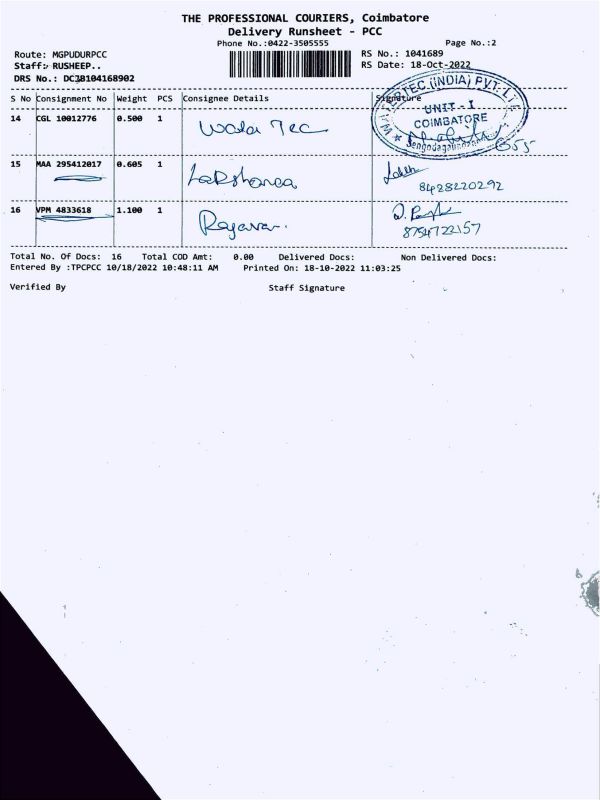 THE PROFESSIONAL COURIERS, Coimbatore
Delivery Runsheet - PCC
Phone No.:0422-3505555
Page No.:2
Route: MGPUDURPCC
RS No.: 1041689
Staff: RUSHEEP..
RS Date: 18-Oct-2022
DRS No.: DC38104168902
S No Consignment No Weight PCS Consignee Details Signature
14 CGL 10012776 0.500 1 Wata Tec
TEC (INDIA) PVT. LTD
UNIT - I
COIMBATORE
15 MAA 295412017 0.605 1 Lakshanea
8428220292
16 VPM 4833618 1.100 1 Rajavar..
8754722157
Total No. Of Docs: 16 Total COD Amt: 0.00 Delivered Docs: Non Delivered Docs:
Entered By :TPCPCC 10/18/2022 10:48:11 AM Printed On: 18-10-2022 11:03:25
Verified By Staff Signature